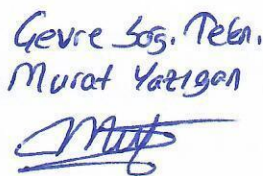 Çevre Sağ. Tekn.
Murat Yazıgan